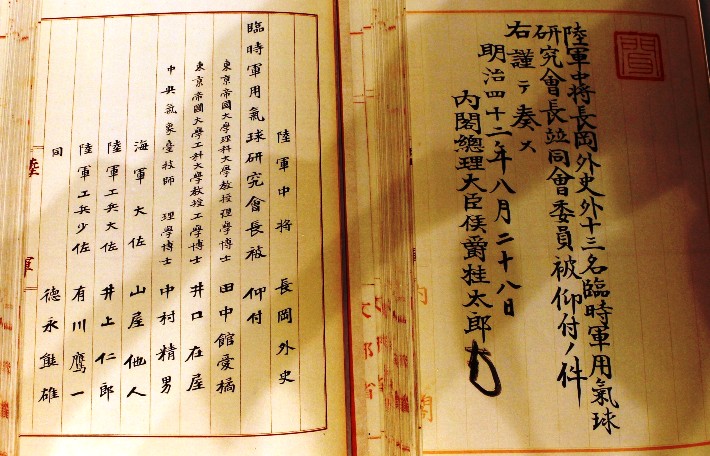 聞
陸軍中将長岡外史外十三名臨時軍用氣球
研究會長竝同會委員被仰付ノ件
右謹テ奏ス
明治四十二年八月二十八日
内閣總理大臣侯爵桂太郎
内閣
文部省
陸軍中将 長岡外史
臨時軍用氣球研究會長被仰付
東京帝國大學理科大學教授理學博士 田中館愛橘
東京帝國大學工科大學教授工學博士 井口在屋
中央氣象臺技師 理學博士 中村精男
海軍大佐 山屋他人
陸軍工兵大佐 井上仁郎
陸軍工兵少佐 有川鷹一
同 德永熊雄
陸軍